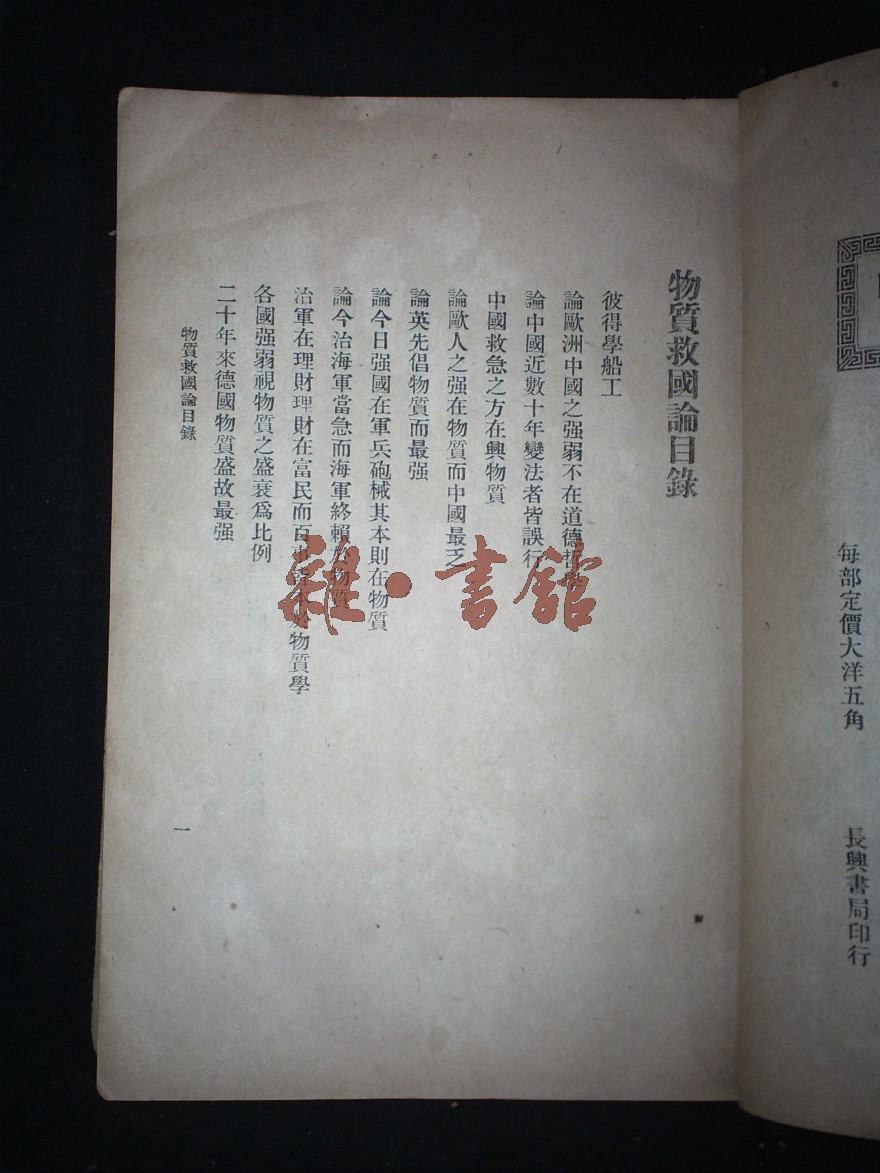 每部定價大洋五角
長興書局印行
物質救國論目錄
彼得學船工
論歐洲中國之强弱不在道德哲學
論中國近數十年變法者皆誤行
中國救急之方在興物質
論歐人之强在物質而中國最乏
論英先倡物質而最强
論今日强國在軍兵砲械其本則在物質
論今治海軍當急而海軍終賴於物質
治軍在理財理財在富民而百事本於物質學
各國强弱視物質之盛衰爲比例
二十年來德國物質盛故最强
物質救國論目錄
一
雜·書館